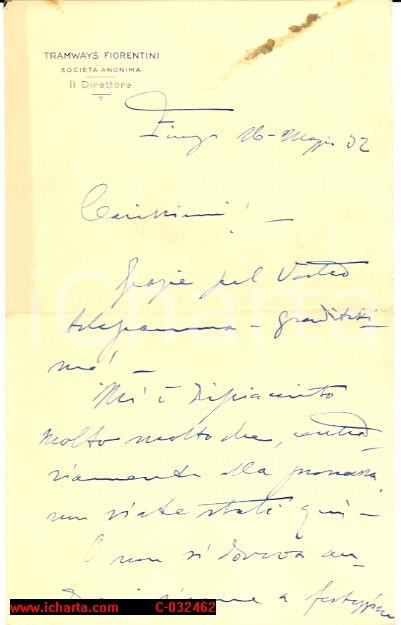 TRAMWAYS FIORENTINI
SOCIETÀ ANONIMA
Il Direttore
Firenze 16 - Maggio 32
Carissimi! -
Grazie pel Vostro
telegramma - graditissi-
mo! -
Mi è dispiaciuto
molto molto che, contra-
riamente alla promessa
non siate stati qui -
O non si doveva an-
insieme a festeggiare
iCharta
www.icharta.com C-032462